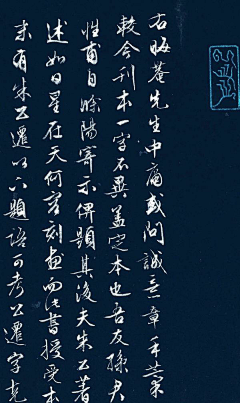 右晦菴先生中庸或問誠意章手藁
較今刊本一字不異蓋定本也吾友孫君
性甫自睢陽寄示俾題其後夫朱公著
述如日星在天何容刻畫而此書授受本
末有朱公遷以下題語可考公遷字克